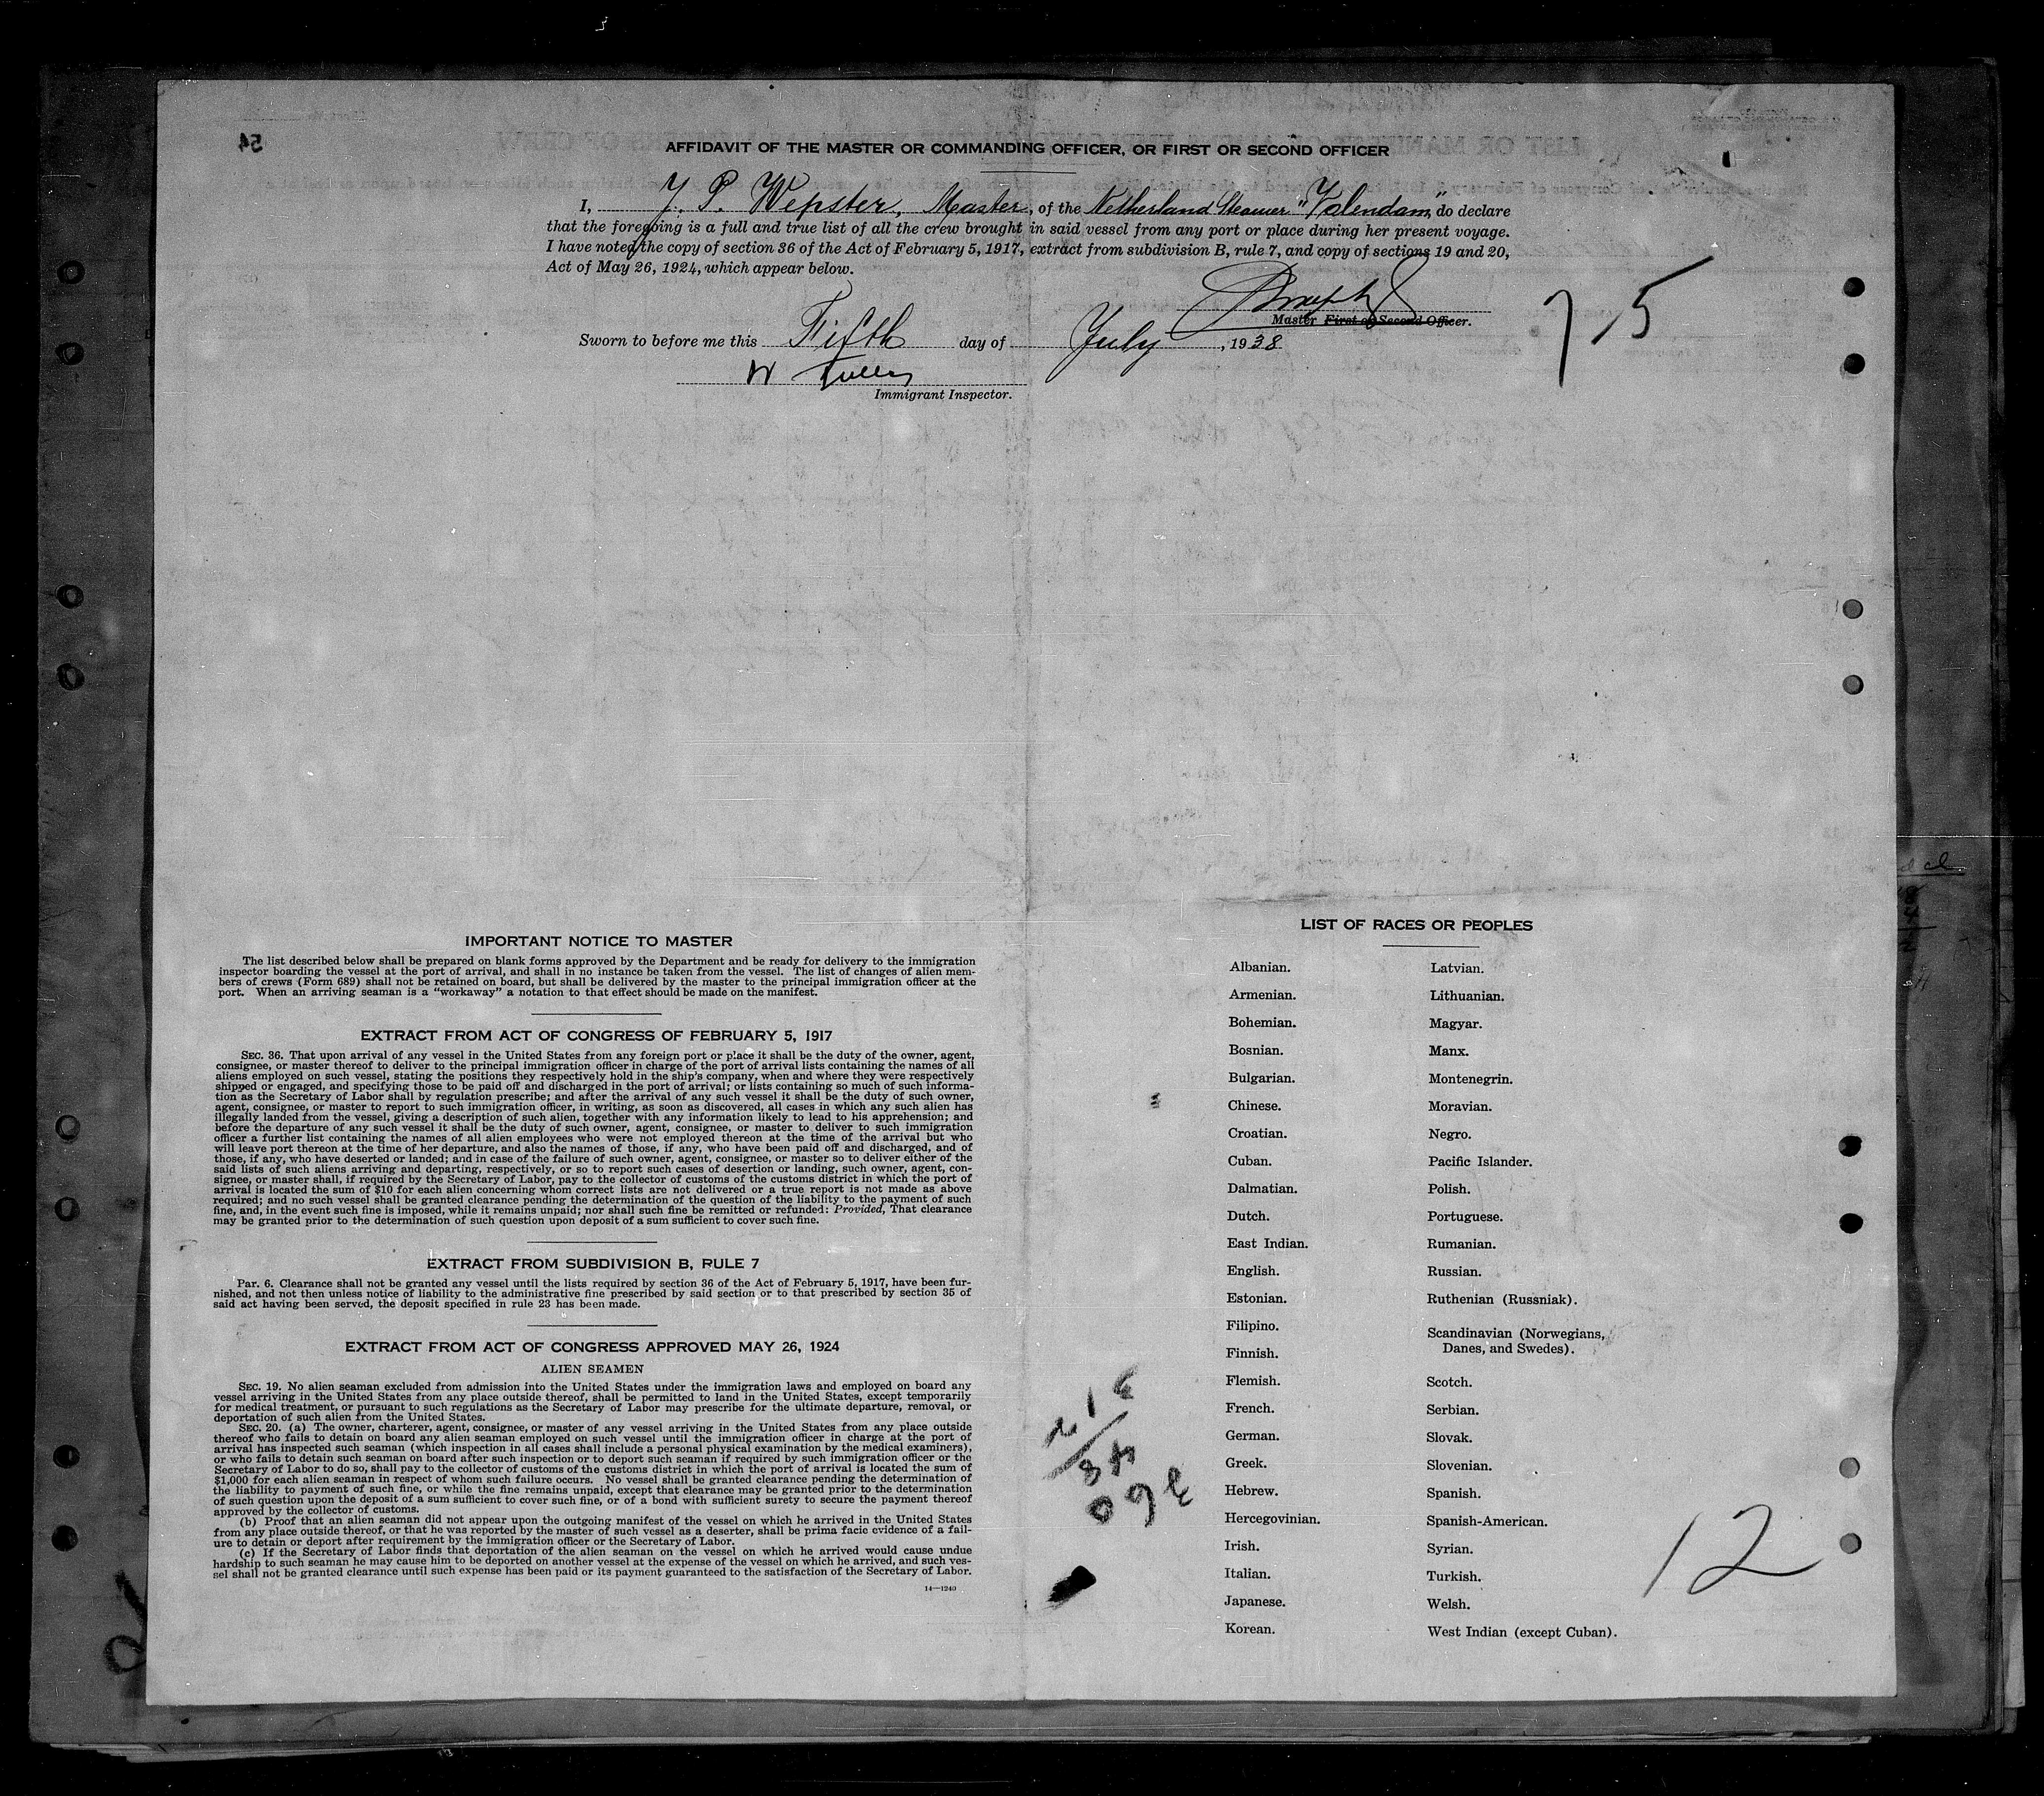 AFFIDAVIT OF THE MASTER OR COMMANDING OFFICER, OR FIRST OR SECOND OFFICER
I, Y. P. Wepster, Master, of the Netherland Steamer "Volendam", do declare
that the foregoing is a full and true list of all the crew brought in said vessel from any port or place during her present voyage.
I have noted the copy of section 36 of the Act of February 5, 1917, extract from subdivision B, rule 7, and copy of sections 19 and 20,
Act of May 26, 1924, which appear below.
Master First or Second Officer.
7/5
Sworn to before me this Fifth day of July, 1938
Immigrant Inspector.
IMPORTANT NOTICE TO MASTER
The list described below shall be prepared on blank forms approved by the Department and be ready for delivery to the immigration
inspector boarding the vessel at the port of arrival, and shall in no instance be taken from the vessel. The list of changes of alien mem-
bers of crews (Form 689) shall not be retained on board, but shall be delivered by the master to the principal immigration officer at the
port. When an arriving seaman is a "workaway" a notation to that effect should be made on the manifest.
EXTRACT FROM ACT OF CONGRESS OF FEBRUARY 5, 1917
SEC. 36. That upon arrival of any vessel in the United States from any foreign port or place it shall be the duty of the owner, agent,
consignee, or master thereof to deliver to the principal immigration officer in charge of the port of arrival lists containing the names of all
aliens employed on such vessel, stating the positions they respectively hold in the ship's company, when and where they were respectively
shipped or engaged, and specifying those to be paid off and discharged in the port of arrival; or lists containing so much of such informa-
tion as the Secretary of Labor shall by regulation prescribe; and after the arrival of any such vessel it shall be the duty of such owner,
agent, consignee, or master to report to such immigration officer, in writing, as soon as discovered, all cases in which any such alien has
illegally landed from the vessel, giving a description of such alien, together with any information likely to lead to his apprehension; and
before the departure of any such vessel it shall be the duty of such owner, agent, consignee, or master to deliver to such immigration
officer a further list containing the names of all alien employees who were not employed thereon at the time of the arrival but who
will leave port thereon at the time of her departure, and also the names of those, if any, who have been paid off and discharged, and of
those, if any, who have deserted or landed; and in case of the failure of such owner, agent, consignee, or master so to deliver either of the
said lists of such aliens arriving and departing, respectively, or so to report such cases of desertion or landing, such owner, agent, con-
signee, or master shall, if required by the Secretary of Labor, pay to the collector of customs of the customs district in which the port of
arrival is located the sum of $10 for each alien concerning whom correct lists are not delivered or a true report is not made as above
required; and no such vessel shall be granted clearance pending the determination of the question of the liability to the payment of such
fine, and, in the event such fine is imposed, while it remains unpaid; nor shall such fine be remitted or refunded: Provided, That clearance
may be granted prior to the determination of such question upon deposit of a sum sufficient to cover such fine.
EXTRACT FROM SUBDIVISION B, RULE 7
Par. 6. Clearance shall not be granted any vessel until the lists required by section 36 of the Act of February 5, 1917, have been fur-
nished, and not then unless notice of liability to the administrative fine prescribed by said section or to that prescribed by section 35 of
said act having been served, the deposit specified in rule 23 has been made.
EXTRACT FROM ACT OF CONGRESS APPROVED MAY 26, 1924
ALIEN SEAMEN
SEC. 19. No alien seaman excluded from admission into the United States under the immigration laws and employed on board any
vessel arriving in the United States from any place outside thereof, shall be permitted to land in the United States, except temporarily
for medical treatment, or pursuant to such regulations as the Secretary of Labor may prescribe for the ultimate departure, removal, or
deportation of such alien from the United States.
SEC. 20. (a) The owner, charterer, agent, consignee, or master of any vessel arriving in the United States from any place outside
thereof who fails to detain on board any alien seaman employed on such vessel until the immigration officer in charge at the port of
arrival has inspected such seaman (which inspection in all cases shall include a personal physical examination by the medical examiners),
or who fails to detain such seaman on board after such inspection or to deport such seaman if required by such immigration officer or the
Secretary of Labor to do so, shall pay to the collector of customs of the customs district in which the port of arrival is located the sum of
$1,000 for each alien seaman in respect of whom such failure occurs. No vessel shall be granted clearance pending the determination of
the liability to payment of such fine, or while the fine remains unpaid, except that clearance may be granted prior to the determination
of such question upon the deposit of a sum sufficient to cover such fine, or of a bond with sufficient surety to secure the payment thereof
approved by the collector of customs.
(b) Proof that an alien seaman did not appear upon the outgoing manifest of the vessel on which he arrived in the United States
from any place outside thereof, or that he was reported by the master of such vessel as a deserter, shall be prima facie evidence of a fail-
ure to detain or deport after requirement by the immigration officer or the Secretary of Labor.
(c) If the Secretary of Labor finds that deportation of the alien seaman on the vessel on which he arrived would cause undue
hardship to such seaman he may cause him to be deported on another vessel at the expense of the vessel on which he arrived, and such ves-
sel shall not be granted clearance until such expense has been paid or its payment guaranteed to the satisfaction of the Secretary of Labor.
14—1240
LIST OF RACES OR PEOPLES
Albanian.
Armenian.
Bohemian.
Bosnian.
Bulgarian.
Chinese.
Croatian.
Cuban.
Dalmatian.
Dutch.
East Indian.
English.
Estonian.
Filipino.
Finnish.
Flemish.
French.
German.
Greek.
Hebrew.
Hercegovinian.
Irish.
Italian.
Japanese.
Korean.
Latvian.
Lithuanian.
Magyar.
Manx.
Montenegrin.
Moravian.
Negro.
Pacific Islander.
Polish.
Portuguese.
Rumanian.
Russian.
Ruthenian (Russniak).
Scandinavian (Norwegians,
Danes, and Swedes).
Scotch.
Serbian.
Slovak.
Slovenian.
Spanish.
Spanish-American.
Syrian.
Turkish.
Welsh.
West Indian (except Cuban).
312
48
360
12